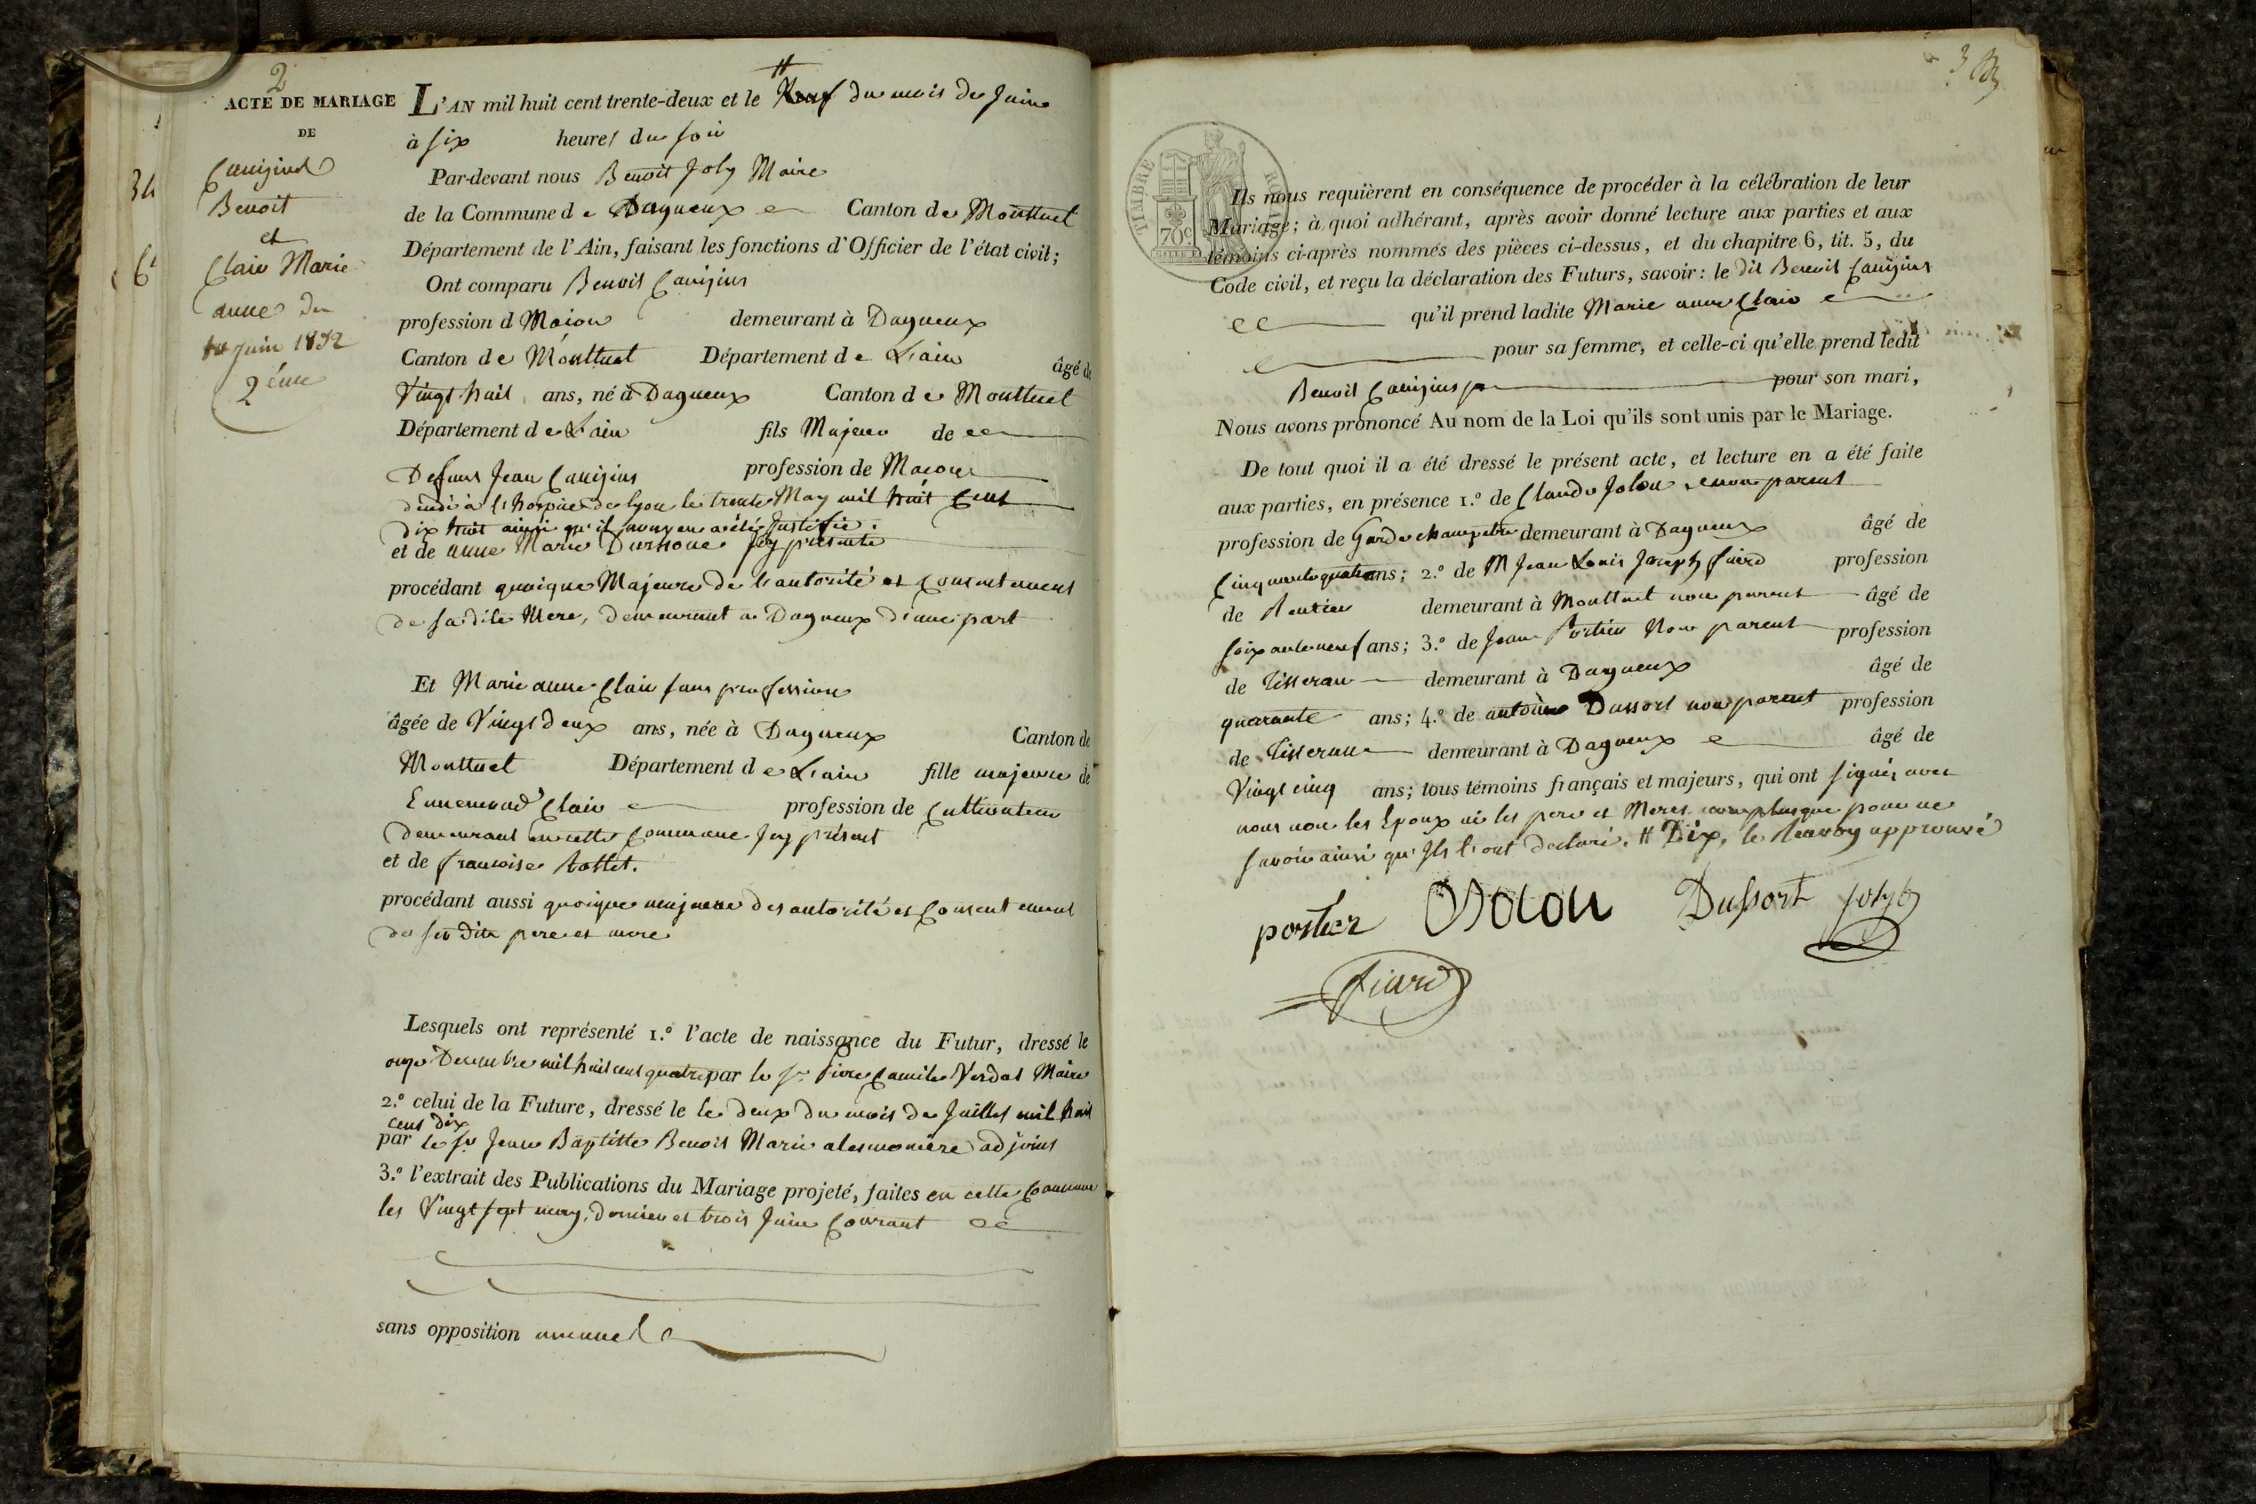 2
ACTE DE MARIAGE
DE
Benoit
et
Clair Marie
anne du
juin 1832
2éme
L'AN mil huit cent trente-deux et le # Neuf du mois de Juin
à six heures du soir
Par-devant nous Benoit Joly Maire
de la Commune de Dagneux Canton de Montluel
Département de l'Ain, faisant les fonctions d'Officier de l'état civil;
Ont comparu Benoit
profession d Maçon demeurant à Dagneux
Canton de Montluel Département de L'ain âgé de
Vingt huit ans, né à Dagneux Canton de Montluel
Département de L'ain fils Majeur de
Defunt Jean profession de Maçon
décédé à l'hospice de lyon le trente May mil huit Cent
dix huit ainsi qu'il nous en a été Justifié.
et de anne Marie Icy présente
procédant quoique Majeure de l'autorité et Consentement
de sa dite Mere, demeurant a Dagneux d'une part
Et Marie anne Clair sans profession
âgée de Vingt deux ans, née à Dagneux Canton de
Montluel Département de L'ain fille majeure de
Ennemond Clair profession de Cultivateur
Demeurant en cette Commune Icy présent
et de francoise
procédant aussi quoique majeure des autorité et Consentement
de ses dits pere et mere
Lesquels ont représenté 1.º l'acte de naissance du Futur, dressé le
onze Decembre mil huit cent quatre par le Sr. Camile Verdat Maire
2.º celui de la Future, dressé le le deux du mois de Juillet mil huit
cent dix
par le Sr Jean Baptiste Benoit Marie adjoint
3.º l'extrait des Publications du Mariage projeté, faites en cette Commune
les Vingt sept may, dernier et trois Juin Courant
sans opposition aucune
3
TIMBRE ROYAL
70c
Ils nous requièrent en conséquence de procéder à la célébration de leur
Mariage; à quoi adhérant, après avoir donné lecture aux parties et aux
témoins ci-après nommés des pièces ci-dessus, et du chapitre 6, tit. 5, du
Code civil, et reçu la déclaration des Futurs, savoir: le dit Benoit
qu'il prend ladite Marie anne Clair
pour sa femme, et celle-ci qu'elle prend ledit
Benoit pour son mari,
Nous avons prononcé Au nom de la Loi qu'ils sont unis par le Mariage.
De tout quoi il a été dressé le présent acte, et lecture en a été faite
aux parties, en présence 1.º de Claude non parent
profession de Garde champetre demeurant à Dagneux âgé de
Cinquante quatre ans; 2.º de M Jean Louis Joseph profession
de Rentier demeurant à Montluel non parent âgé de
soixante neuf ans; 3.º de Jean Portier Non parent profession
de Tisseran demeurant à Dagneux âgé de
quarante ans; 4.º de antoine Dussort non parent profession
de Tisseran demeurant à Dagneux âgé de
Vingt cinq ans; tous témoins français et majeurs, qui ont signés avec
nous non les Epoux ni les pere et Meres pour ne
savoir ainsi qu'Ils l'ont declaré. # Dix, le Renvoy approuvé
portier Dussort Joly